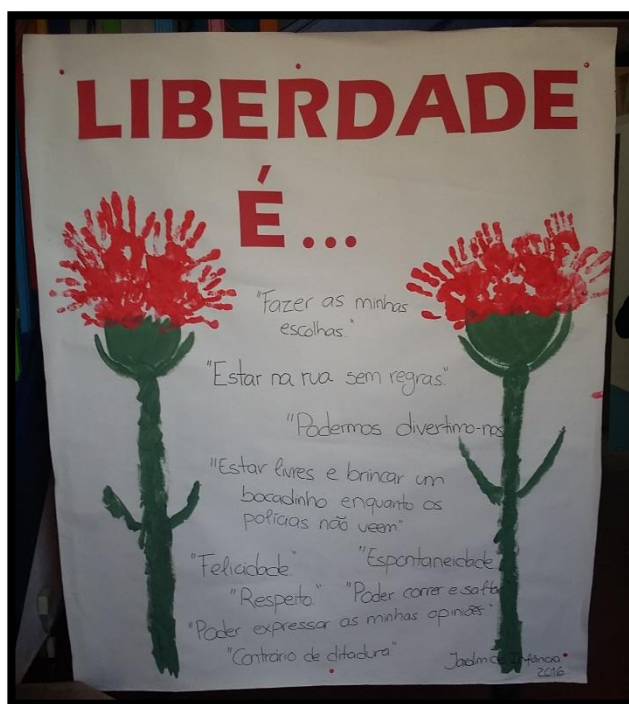 LIBERDADE
É...
"Fazer as minhas
escolhas."
"Estar na rua sem regras"
"Podermos divertimo-nos
"Estar livres e brincar um
bocadinho enquanto os
polícias não veem"
"Felicidade" "Espontaneidade
"Respeito" "Poder correr e salta
"Poder expressar as minhas opiniões"
"Contrário de ditadura"
Jardim de Infância
2016